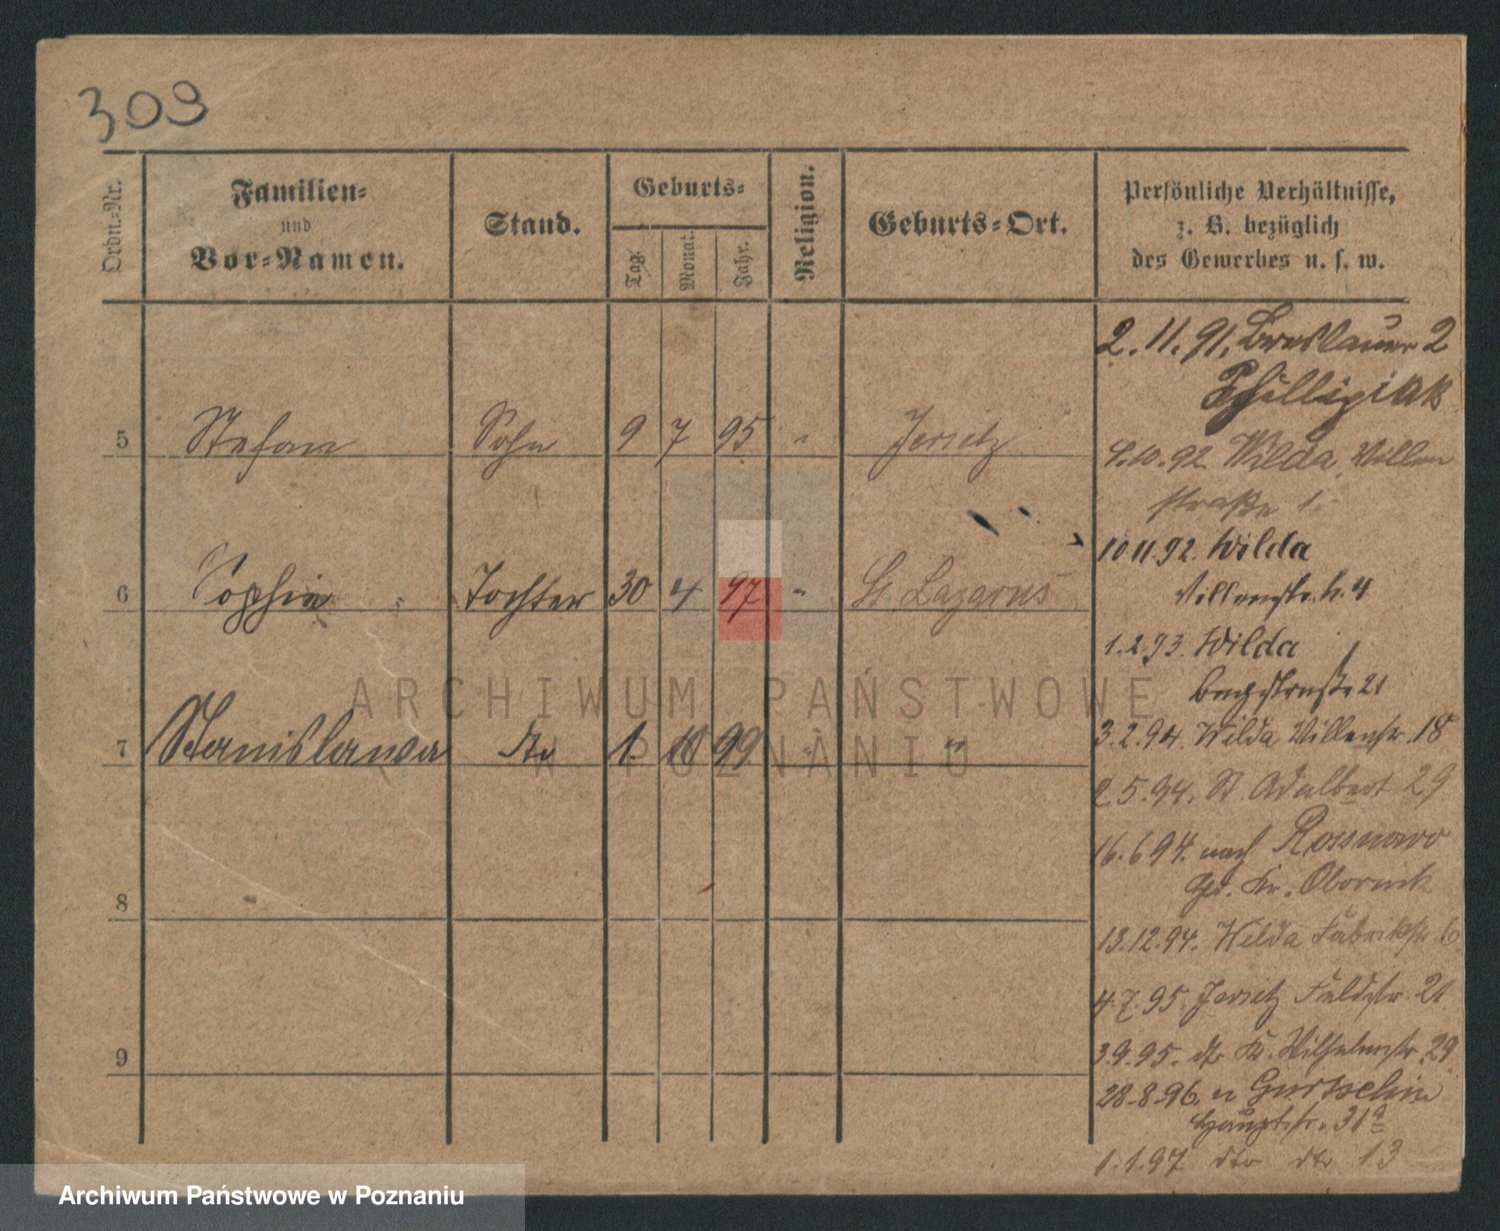 309
Ordn.-Nr.
Familien-
und
Vor-Namen.
Stand.
Geburts-
Tag.
Monat.
Jahr.
Religion.
Geburts-Ort.
Persönliche Verhältnisse,
z. B. bezüglich
des Gewerbes u. s. w.
2. 11. 91. Breslauer 2
5 Stefan Sohn 9 7 95 " Jersitz
10 11 92. Wilda
Villenstr. 4
6 Sophie Tochter 30 4 97 " St. Lazarus
1. 2. 93. Wilda
7 Stanislawa dto 1. 10 99 " "
3. 2. 94. Wilda Villenstr. 18
2. 5. 94. St. Adalbert 29
16. 6 94. nach
Kr. Obornik
8
13. 12. 94. Wilda Fabrikstr. 6
4. 7. 95. Jersitz Feldstr. 21
3. 9. 95. dto Kl. Wilhelmstr. 29
9
28. 8. 96. n Gurtschin
Hauptstr. 31a
1. 1. 97 dto dto 13
ARCHIWUM PAŃSTWOWE
W POZNANIU
Archiwum Państwowe w Poznaniu